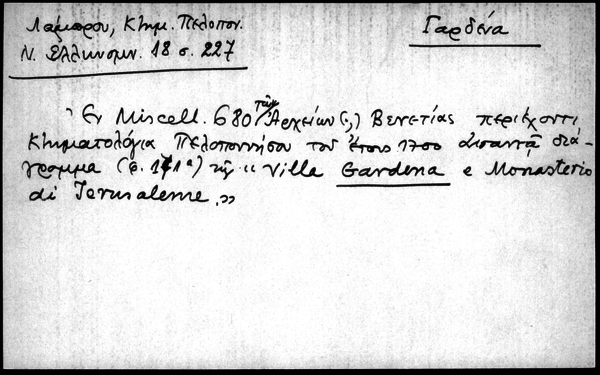 Λάμπρου, Κτημ. Πελοπον.
Ν. Ελληνομν. 18 σ. 227
Γαρδένα
Ἐν Miscell. 680 τῶν Ἀρχείων (;) Βενετίας περιέχοντι
Κτηματολόγια Πελοποννήσου τοῦ ἔτους 1700 ἀπαντᾷ διά-
γραμμα (φ. 171α) τῆς "Villa Gardena e Monasterio
di Jerusaleme."